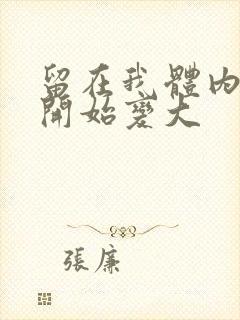 留在我體內
開始變大
張廉